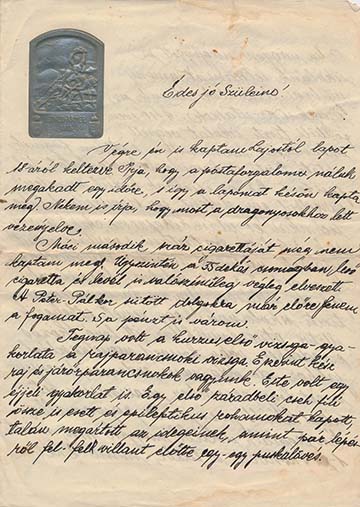 Édes jó Szüleim!
Végre én is kaptam Lajostól lapot
18-áról keltezve. Írja, hogy a postaforgalom náluk
megakadt egy időre, s így a lapomat későn kapta
meg. Nekem is írja, hogy most a dragonyosokhoz lett
vezényelve.
Máci második száz cigarettáját még nem
kaptam meg. Ugyszintén a 35 dekás csomagban levő
cigaretta és levél is valószinüleg végleg elveszett.
A Péter-Pálkor sütött dolgokra már előre fenem
a fogamat. S a pénzt is várom.
Tegnap volt a kurzus első vizsga-gya-
korlata a rajparancsnoki vizsga. Eszerint kész
raj és járőrparancsnokok vagyunk. Este volt egy
éjjeli gyakorlat is. Egy első századbeli cseh fiú
össze is esett és epileptikus rohamokat kapott,
talán megártott az idegeinek, amint pár lépés-
ről fel-fel villant előtte egy-egy puskalövés.